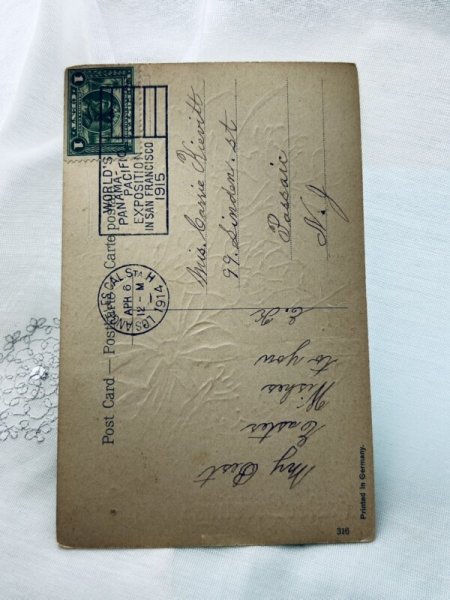 Post Card — Postkarte — Carte postale
My Best
Easter
Wishes
to you
C. K
LOS ANGELES, CAL. STA. H
APR 6
12 - M
1914
WORLD'S
PANAMA-
PACIFIC
EXPOSITION
IN SAN FRANCISCO
1915
1 CENT 1
Mrs. Carrie Kievitt
99 Linden. st
Passaic
N. J
316
Printed in Germany.